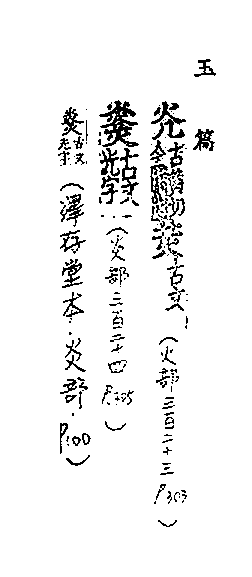 玉篇
灮古文(火部三百二十三 P303)
古文光字(炎部三百二十四 P305)
古文光字(澤存堂本·炎部·P100)